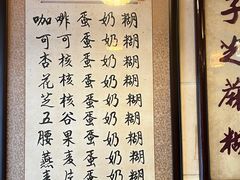 咖啡蛋奶糊
可可蛋奶糊
杏核蛋奶糊
花核蛋奶糊
芝蛋奶糊
五谷蛋奶糊
腰果蛋奶糊
燕麦蛋奶糊
片
芝麻糊